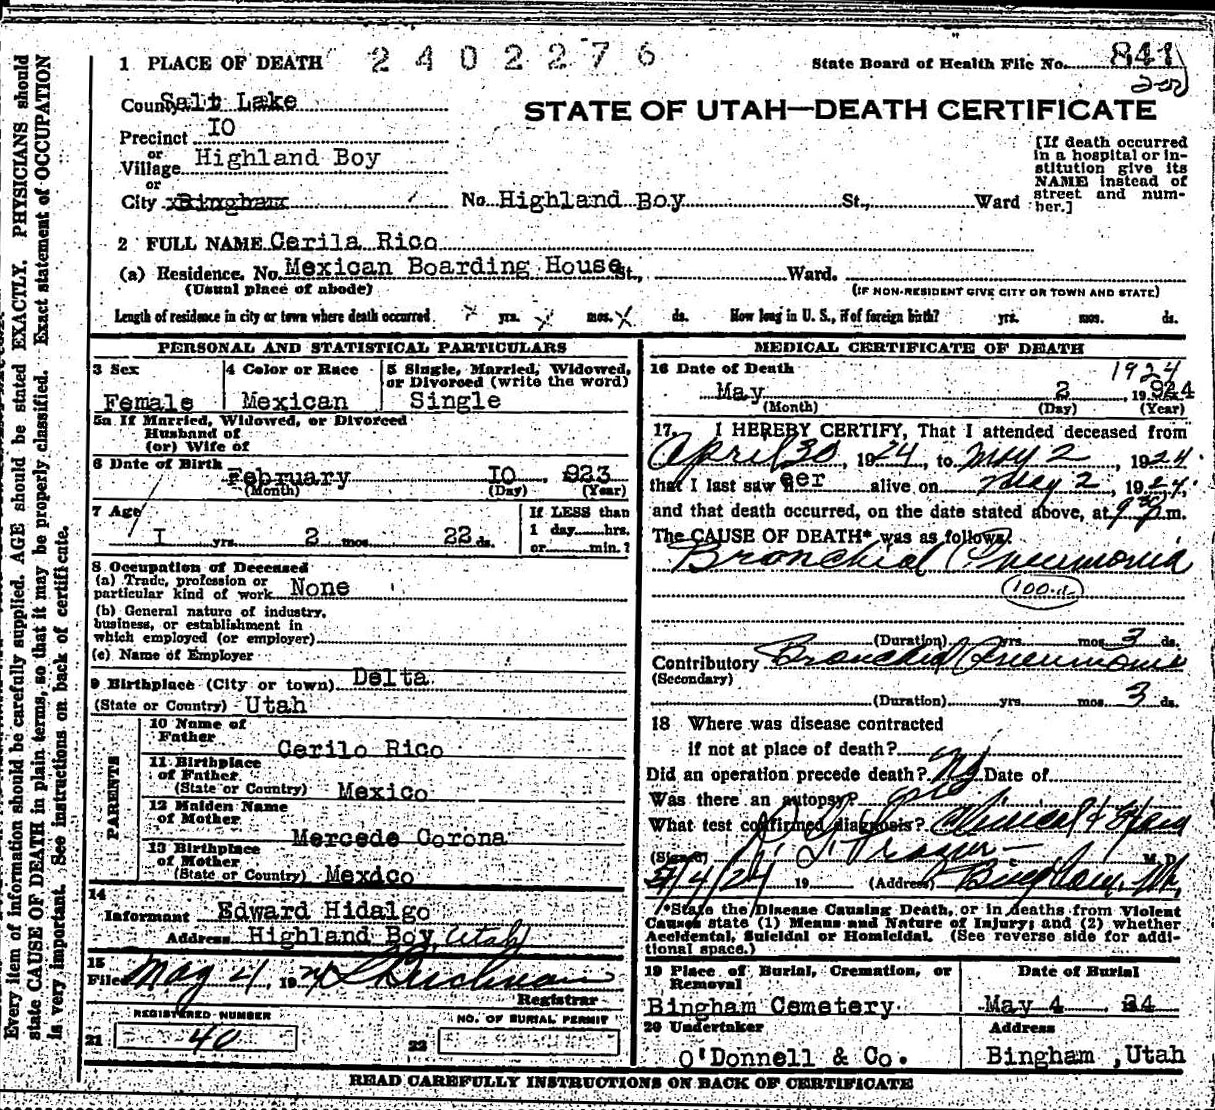 1 PLACE OF DEATH 2402276 State Board of Health File No. 841
County Salt Lake
STATE OF UTAH—DEATH CERTIFICATE
Precinct 10
or
Village Highland Boy
or
City Bingham No. Highland Boy St., Ward
[If death occurred
in a hospital or in-
stitution give its
NAME instead of
street and num-
ber.]
2 FULL NAME Cerila Rico
(a) Residence. No. Mexican Boarding House St., Ward.
(Usual place of abode) (IF NON-RESIDENT GIVE CITY OR TOWN AND STATE)
Length of residence in city or town where death occurred yrs. mos. ds. How long in U. S., if of foreign birth? yrs. mos. ds.
PERSONAL AND STATISTICAL PARTICULARS
3 Sex
Female
4 Color or Race
Mexican
5 Single, Married, Widowed,
or Divorced (write the word)
Single
5a If Married, Widowed, or Divorced
Husband of
(or) Wife of
6 Date of Birth
February 10 , 923
(Month) (Day) (Year)
7 Age
1 yrs. 2 mos. 22 ds.
If LESS than
1 day hrs.
or min.?
8 Occupation of Deceased
(a) Trade, profession or
particular kind of work None
(b) General nature of industry,
business, or establishment in
which employed (or employer)
(c) Name of Employer
9 Birthplace (City or town) Delta
(State or Country) Utah
PARENTS
10 Name of
Father
Cerilo Rico
11 Birthplace
of Father
(State or Country) Mexico
12 Maiden Name
of Mother
Mercede Corona
13 Birthplace
of Mother
(State or Country) Mexico
14
Informant Edward Hidalgo
Address Highland Boy, Utah
15
Filed May 4, 1924
Registrar
REGISTERED NUMBER
21 40
NO. OF BURIAL PERMIT
22
MEDICAL CERTIFICATE OF DEATH
16 Date of Death 1924
May 2 , 1924
(Month) (Day) (Year)
17. I HEREBY CERTIFY, That I attended deceased from
April 30, 1924, to May 2, 1924.
that I last saw her alive on May 2, 1924.
and that death occurred, on the date stated above, at 9 30 p.m.
The CAUSE OF DEATH* was as follows:
Bronchial Pneumonia
100.a
(Duration) yrs. mos. 3 ds.
Contributory Bronchial Pneumonia
(Secondary)
(Duration) yrs. mos. 3 ds.
18 Where was disease contracted
if not at place of death?
Did an operation precede death? No Date of
Was there an autopsy?
What test confirmed diagnosis? Clinical &
(Signed) Frazier M. D.
5/4/24 19 (Address) Bingham, Ut.
*State the Disease Causing Death, or in deaths from Violent
Causes state (1) Means and Nature of Injury; and (2) whether
Accidental, Suicidal or Homicidal. (See reverse side for addi-
tional space.)
19 Place of Burial, Cremation, or
Removal
Bingham Cemetery
Date of Burial
May 4 24
20 Undertaker
O'Donnell & Co.
Address
Bingham ,Utah
READ CAREFULLY INSTRUCTIONS ON BACK OF CERTIFICATE
Every item of information should be carefully supplied. AGE should be stated EXACTLY. PHYSICIANS should
state CAUSE OF DEATH in plain terms, so that it may be properly classified. Exact statement of OCCUPATION
is very important. See instructions on back of certificate.